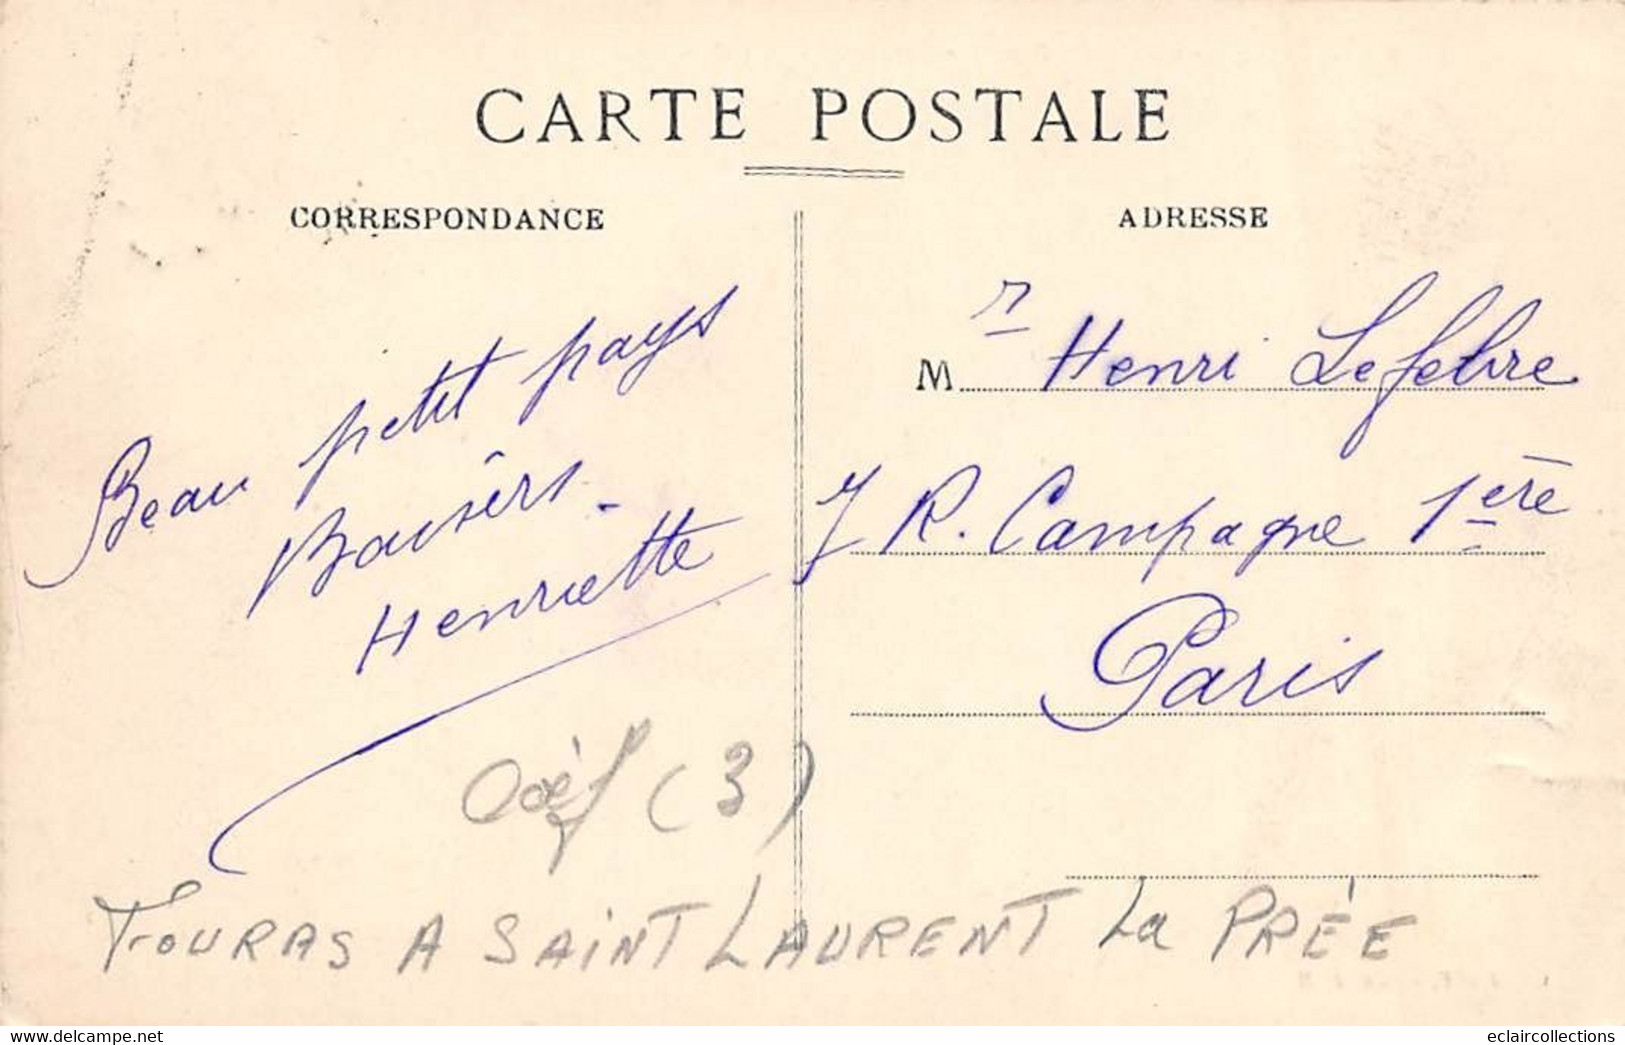 CARTE POSTALE
CORRESPONDANCE
ADRESSE
Beau petit pays
Baisers.
Henriette
Mr Henri Lefebvre
7 R. Campagne 1ère
Paris
(3)
FOURAS A SAINT LAURENT La PRÉE
delcampe.net
eclaircollections